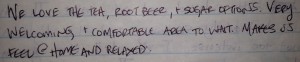 WE LOVE THE TEA, ROOT BEER, + SUGAR OPTIONS. VERY
WELCOMING, + COMFORTABLE AREA TO WAIT. MAKES US
FEEL @ HOME AND RELAXED.